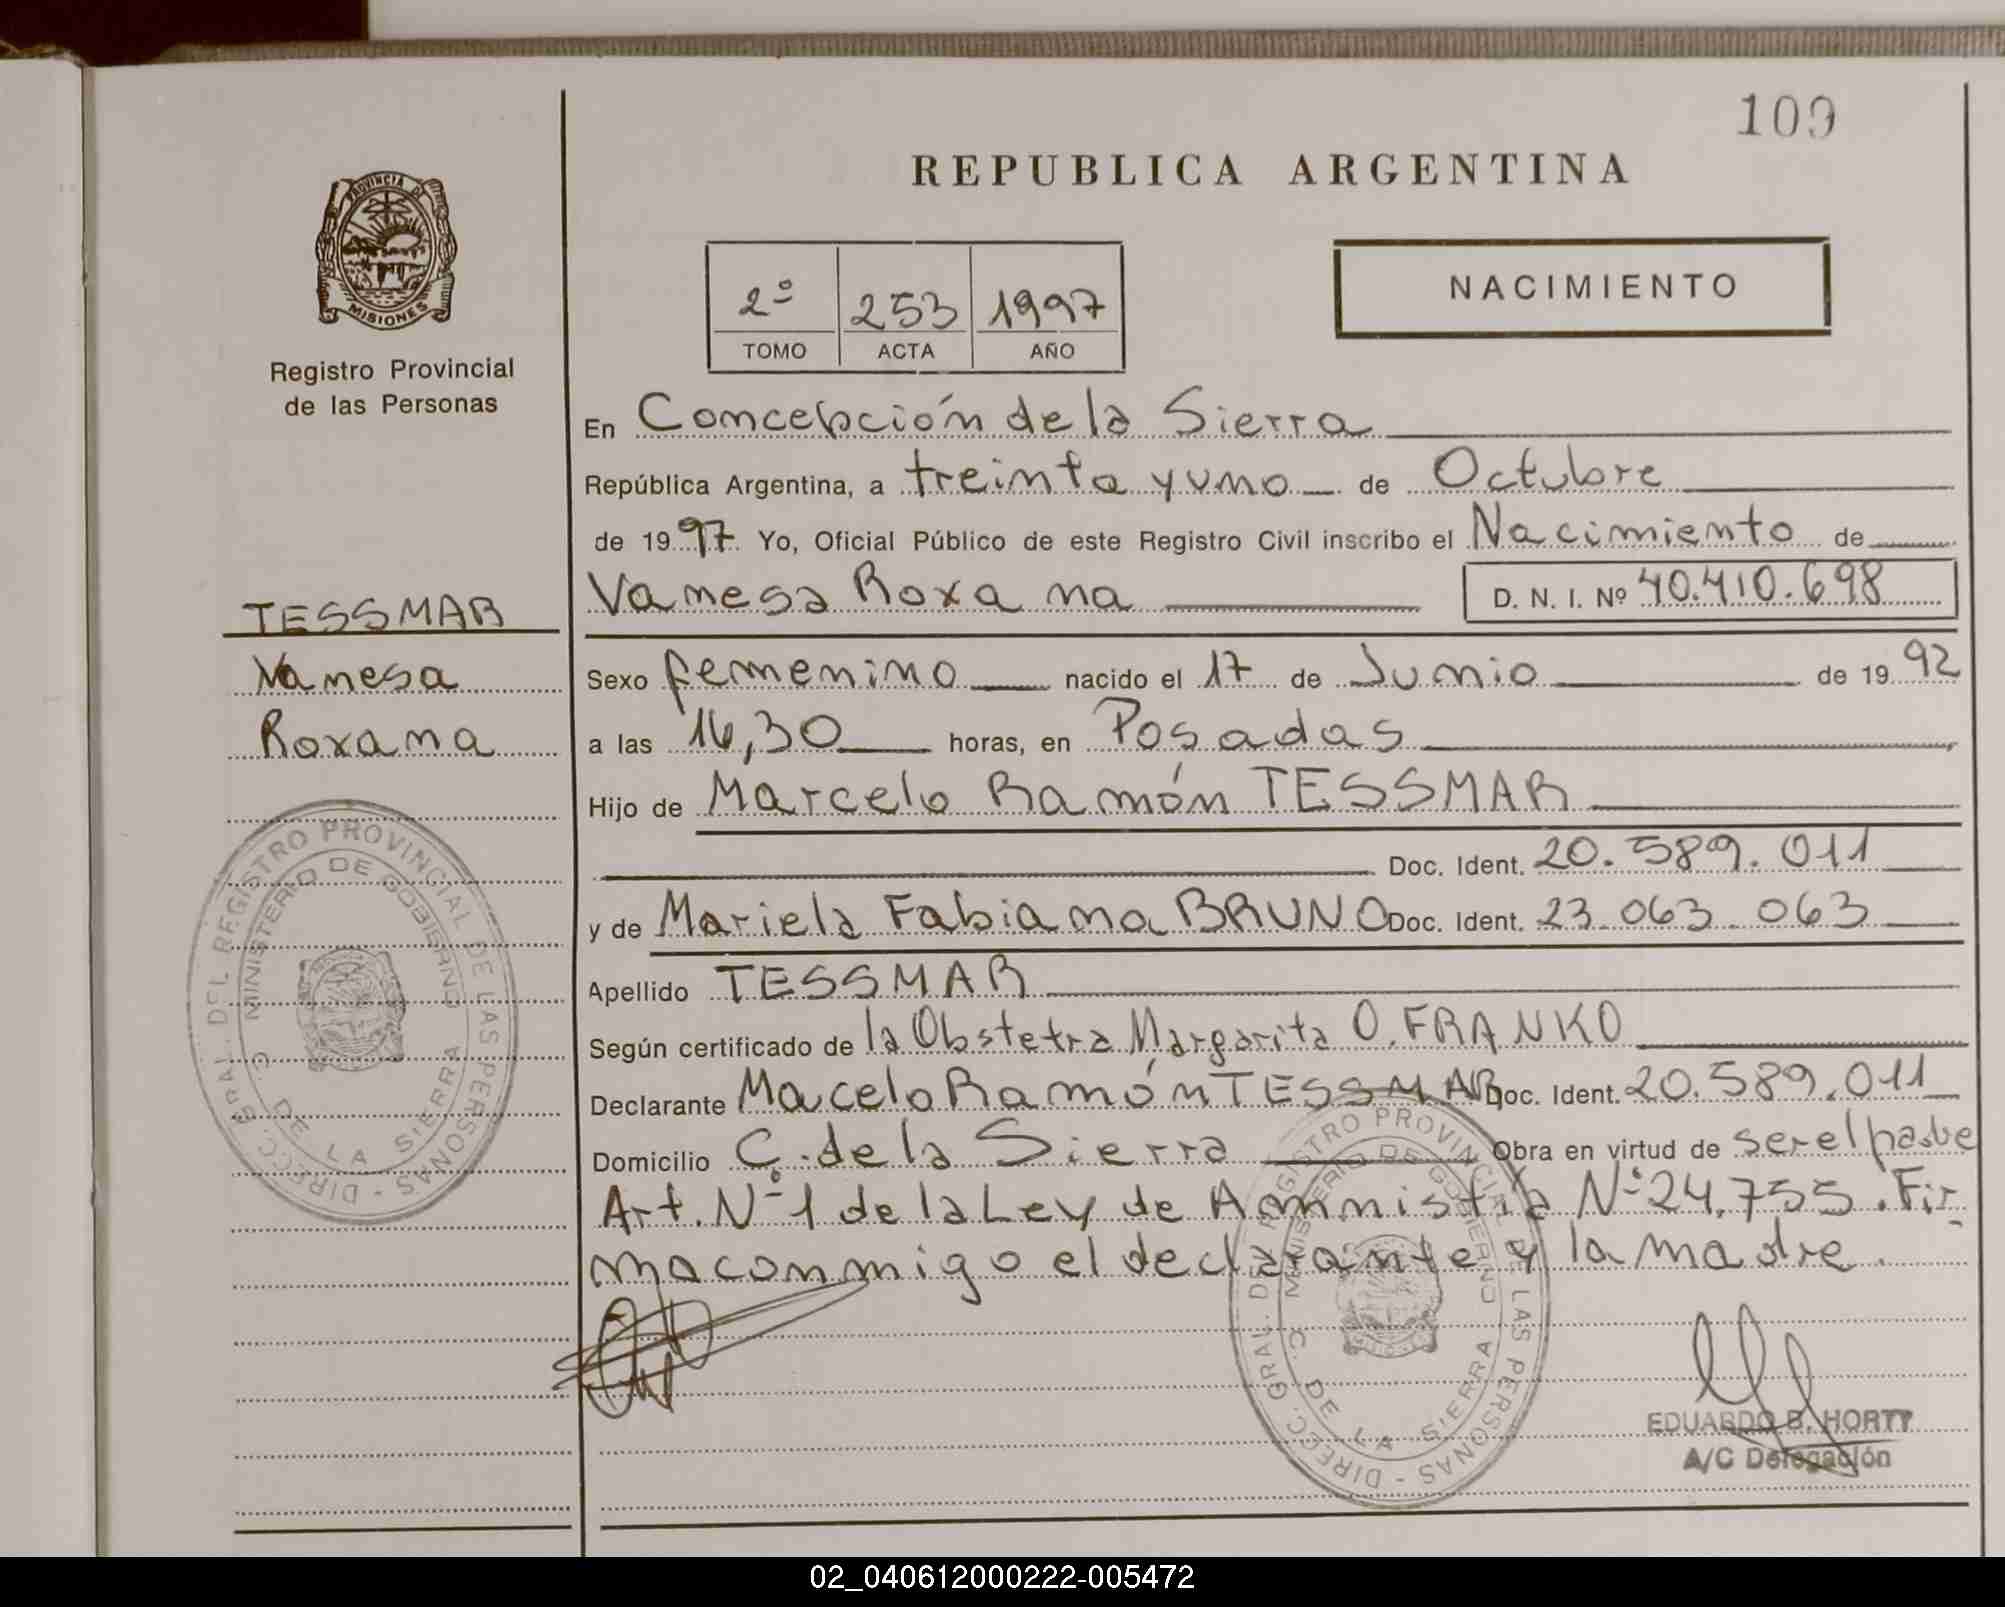 109
REPUBLICA ARGENTINA
PROVINCIA DE
MISIONES
Registro Provincial
de las Personas
2º 253 1997
TOMO ACTA AÑO
NACIMIENTO
En Concepción de la Sierra
República Argentina, a treinta y uno de Octubre
de 1997 Yo, Oficial Público de este Registro Civil inscribo el Nacimiento de
Vanesa Roxana D. N. I. Nº 40.410.698
TESSMAR
Vanesa
Roxana
Sexo femenino nacido el 17 de Junio de 1992
a las 14,30 horas, en Posadas
Hijo de Marcelo Ramón TESSMAR
Doc. Ident. 20.589.011
y de Mariela Fabiana BRUNO Doc. Ident. 23.063.063
Apellido TESSMAR
Según certificado de la Obstetra Margarita O. FRANKO
Declarante Macelo Ramón TESSMAR Doc. Ident. 20.589.011
Domicilio C. de la Sierra Obra en virtud de ser el padre
Art. Nº 1 de la Ley de Ammistía Nº 24.755. Fir
ma conmigo el declarante y la madre.
DIRECC. GRAL. DEL REGISTRO PROVINCIAL DE LAS PERSONAS -
MINISTERIO DE GOBIERNO
C. DE LA SIERRA
DIRECC. GRAL. DEL REGISTRO PROVINCIAL DE LAS PERSONAS -
MINISTERIO DE GOBIERNO
C. DE LA SIERRA
EDUARDO B. HORTY
A/C Delegación
02_040612000222-005472